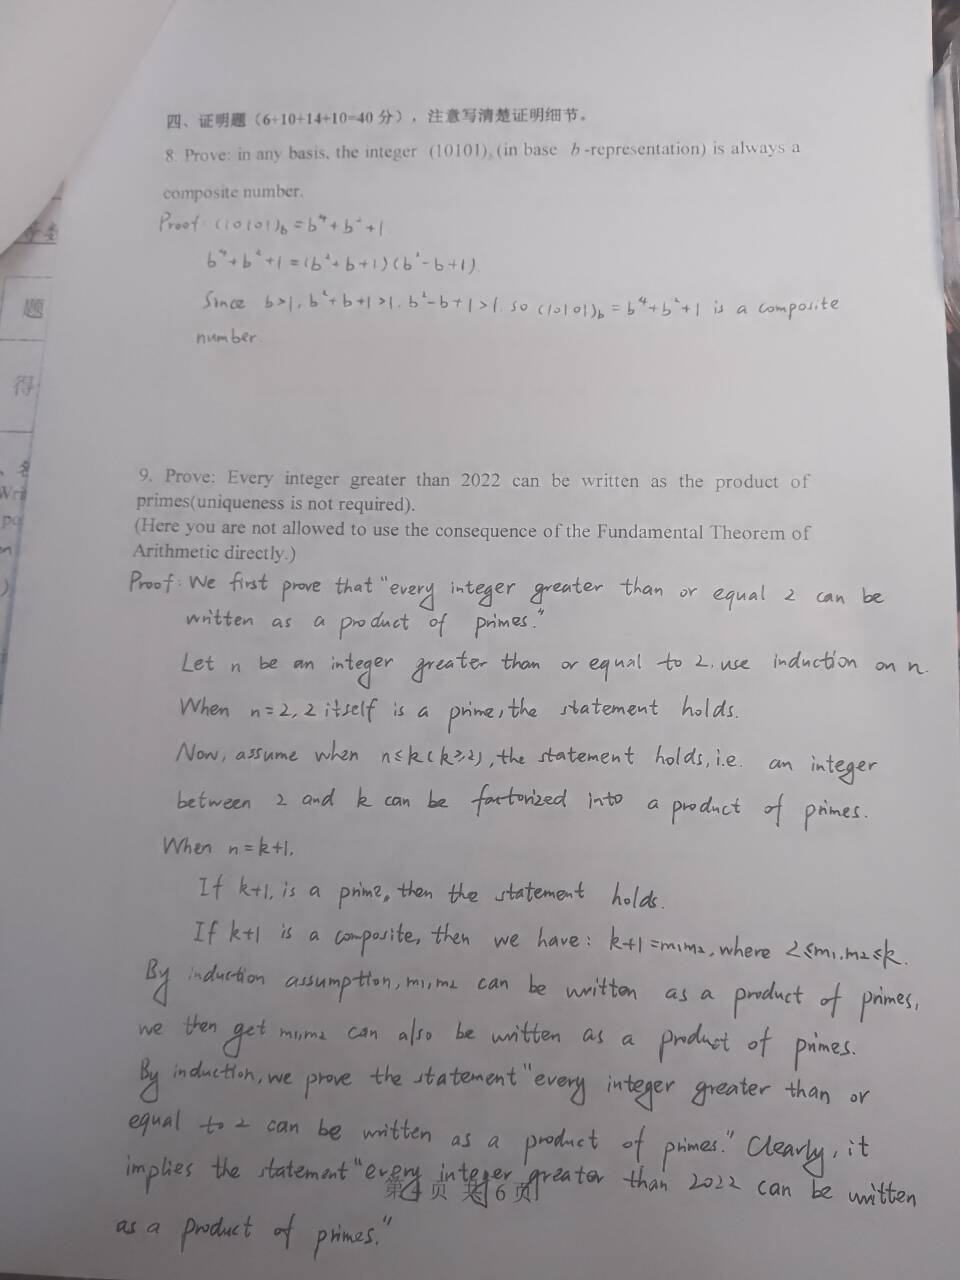 四、证明题（6+10+14+10=40 分），注意写清楚证明细节。
8. Prove: in any basis, the integer (10101)_b (in base b-representation) is always a
composite number.
Proof: (10101)_b = b⁴+b²+1
b⁴+b²+1=(b²+b+1)(b²-b+1)
Since b>1, b²+b+1>1, b²-b+1>1, so (10101)_b = b⁴+b²+1 is a composite
number.
题
得
9. Prove: Every integer greater than 2022 can be written as the product of
primes(uniqueness is not required).
(Here you are not allowed to use the consequence of the Fundamental Theorem of
Arithmetic directly.)
Proof: We first prove that "every integer greater than or equal 2 can be
written as a product of primes."
Let n be an integer greater than or equal to 2, use induction on n.
When n=2, 2 itself is a prime, the statement holds.
Now, assume when n≤k(k≥2), the statement holds, i.e. an integer
between 2 and k can be factorized into a product of primes.
When n=k+1,
If k+1, is a prime, then the statement holds.
If k+1 is a composite, then we have: k+1=m₁m₂, where 2≤m₁,m₂≤k.
By induction assumption, m₁,m₂ can be written as a product of primes,
we then get m₁m₂ can also be written as a product of primes.
By induction, we prove the statement "every integer greater than or
equal to 2 can be written as a product of primes." Clearly, it
implies the statement "every integer greater than 2022 can be written
第4页 共6页
as a product of primes."